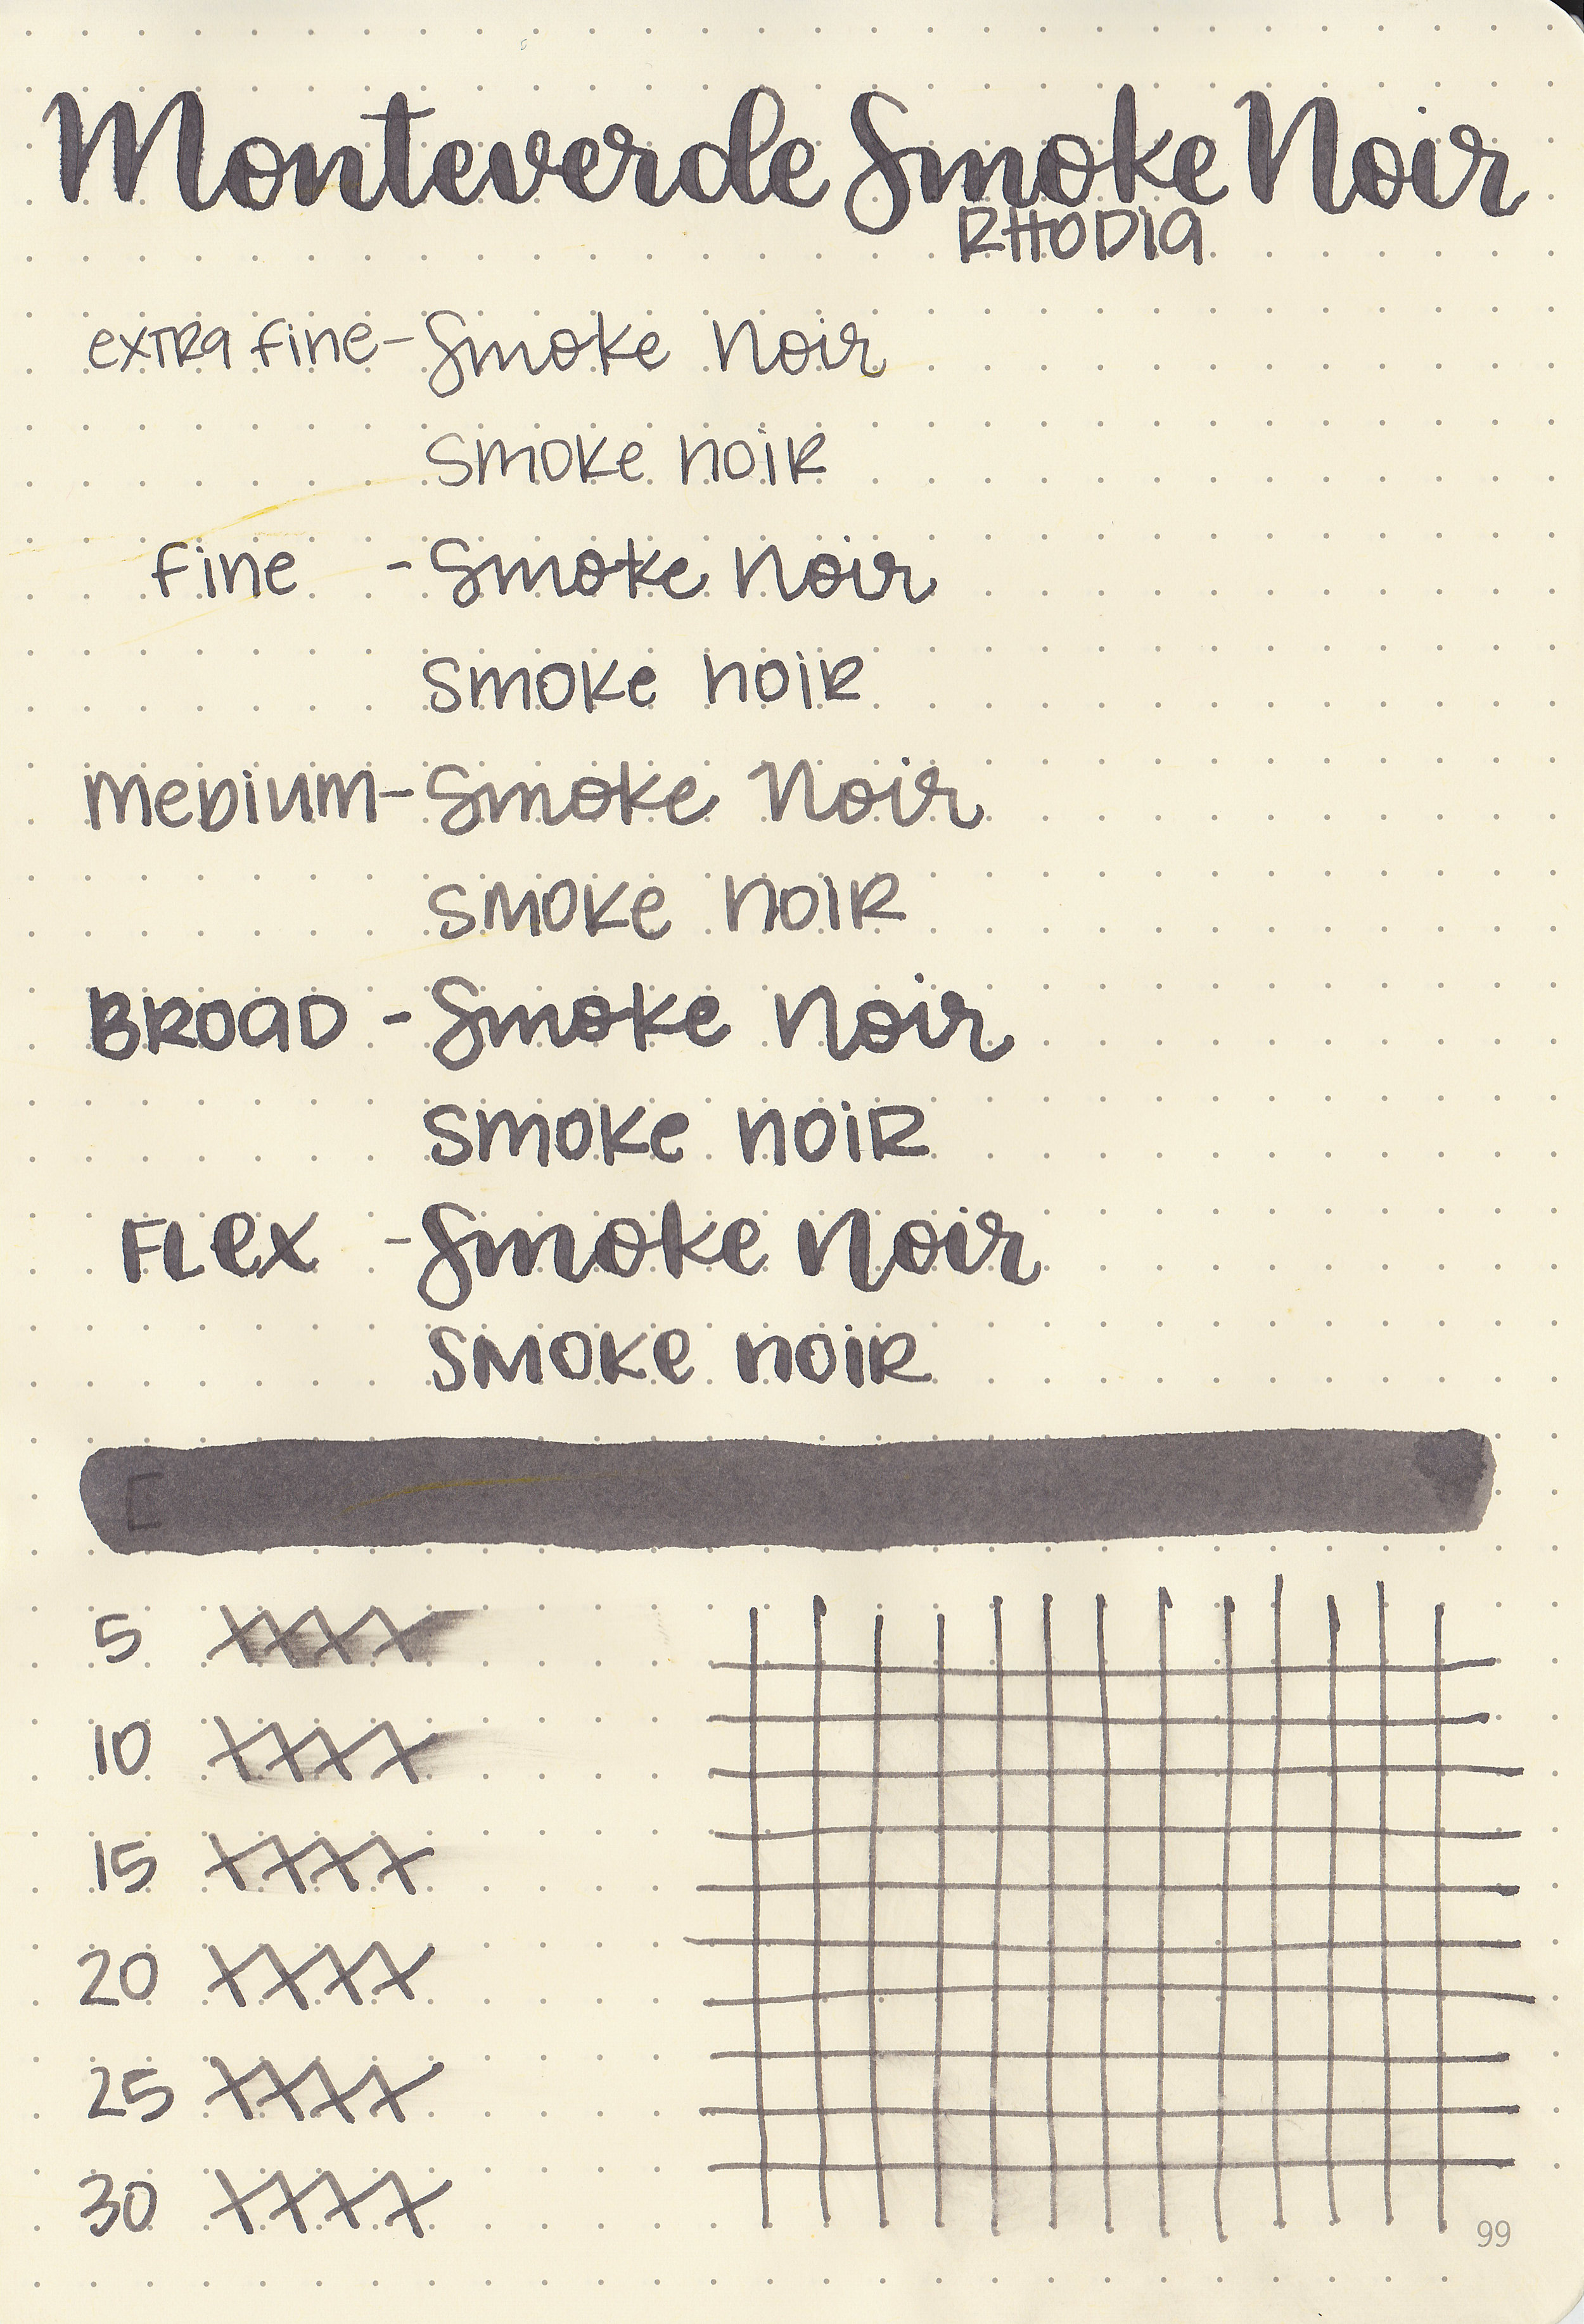 Monteverde Smoke Noir
RHODIA
extra fine - Smoke Noir
smoke noir
fine - Smoke Noir
smoke noir
medium - Smoke Noir
smoke noir
BROAD - Smoke Noir
smoke noir
FLex - Smoke Noir
smoke noir
5 XXXX
10 XXXX
15 XXXX
20 XXXX
25 XXXX
30 XXXX
99